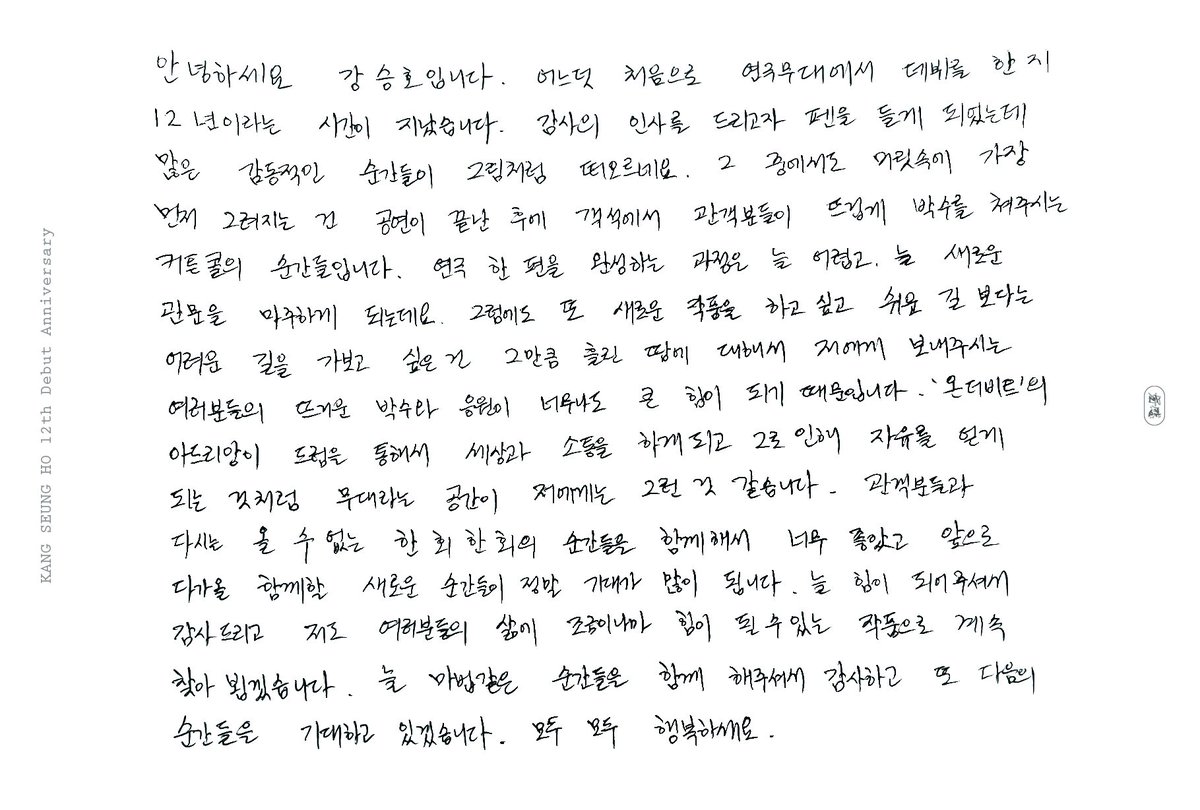 안녕하세요 강승호입니다. 어느덧 처음으로 연극무대에서 데뷔를 한 지
12년이라는 시간이 지났습니다. 감사의 인사를 드리고자 펜을 들게 되었는데
많은 감동적인 순간들이 그림처럼 떠오르네요. 그 중에서도 머릿속에 가장
먼저 그려지는 건 공연이 끝난 후에 객석에서 관객분들이 뜨겁게 박수를 쳐주시는
커튼콜의 순간들입니다. 연극 한 편을 완성하는 과정은 늘 어렵고. 늘 새로운
관문을 마주하게 되는데요. 그럼에도 또 새로운 작품을 하고 싶고 쉬운 길 보다는
어려운 길을 가보고 싶은 건 그만큼 흘린 땀에 대해서 저에게 보내주시는
여러분들의 뜨거운 박수와 응원이 너무나도 큰 힘이 되기 때문입니다. '온더비트'의
아드리앙이 드럼을 통해서 세상과 소통을 하게되고 그로 인해 자유를 얻게
되는 것처럼 무대라는 공간이 저에게는 그런 것 같습니다. 관객분들과
다시는 올 수 없는 한 회 한 회의 순간들을 함께해서 너무 좋았고 앞으로
다가올 함께할 새로운 순간들이 정말 기대가 많이 됩니다. 늘 힘이 되어주셔서
감사드리고 저도 여러분들의 삶에 조금이나마 힘이 될 수 있는 작품으로 계속
찾아 뵙겠습니다. 늘 마법같은 순간들을 함께 해주셔서 감사하고 또 다음의
순간들을 기대하고 있겠습니다. 모두 모두 행복하세요.
KANG SEUNG HO 12th Debut Anniversary